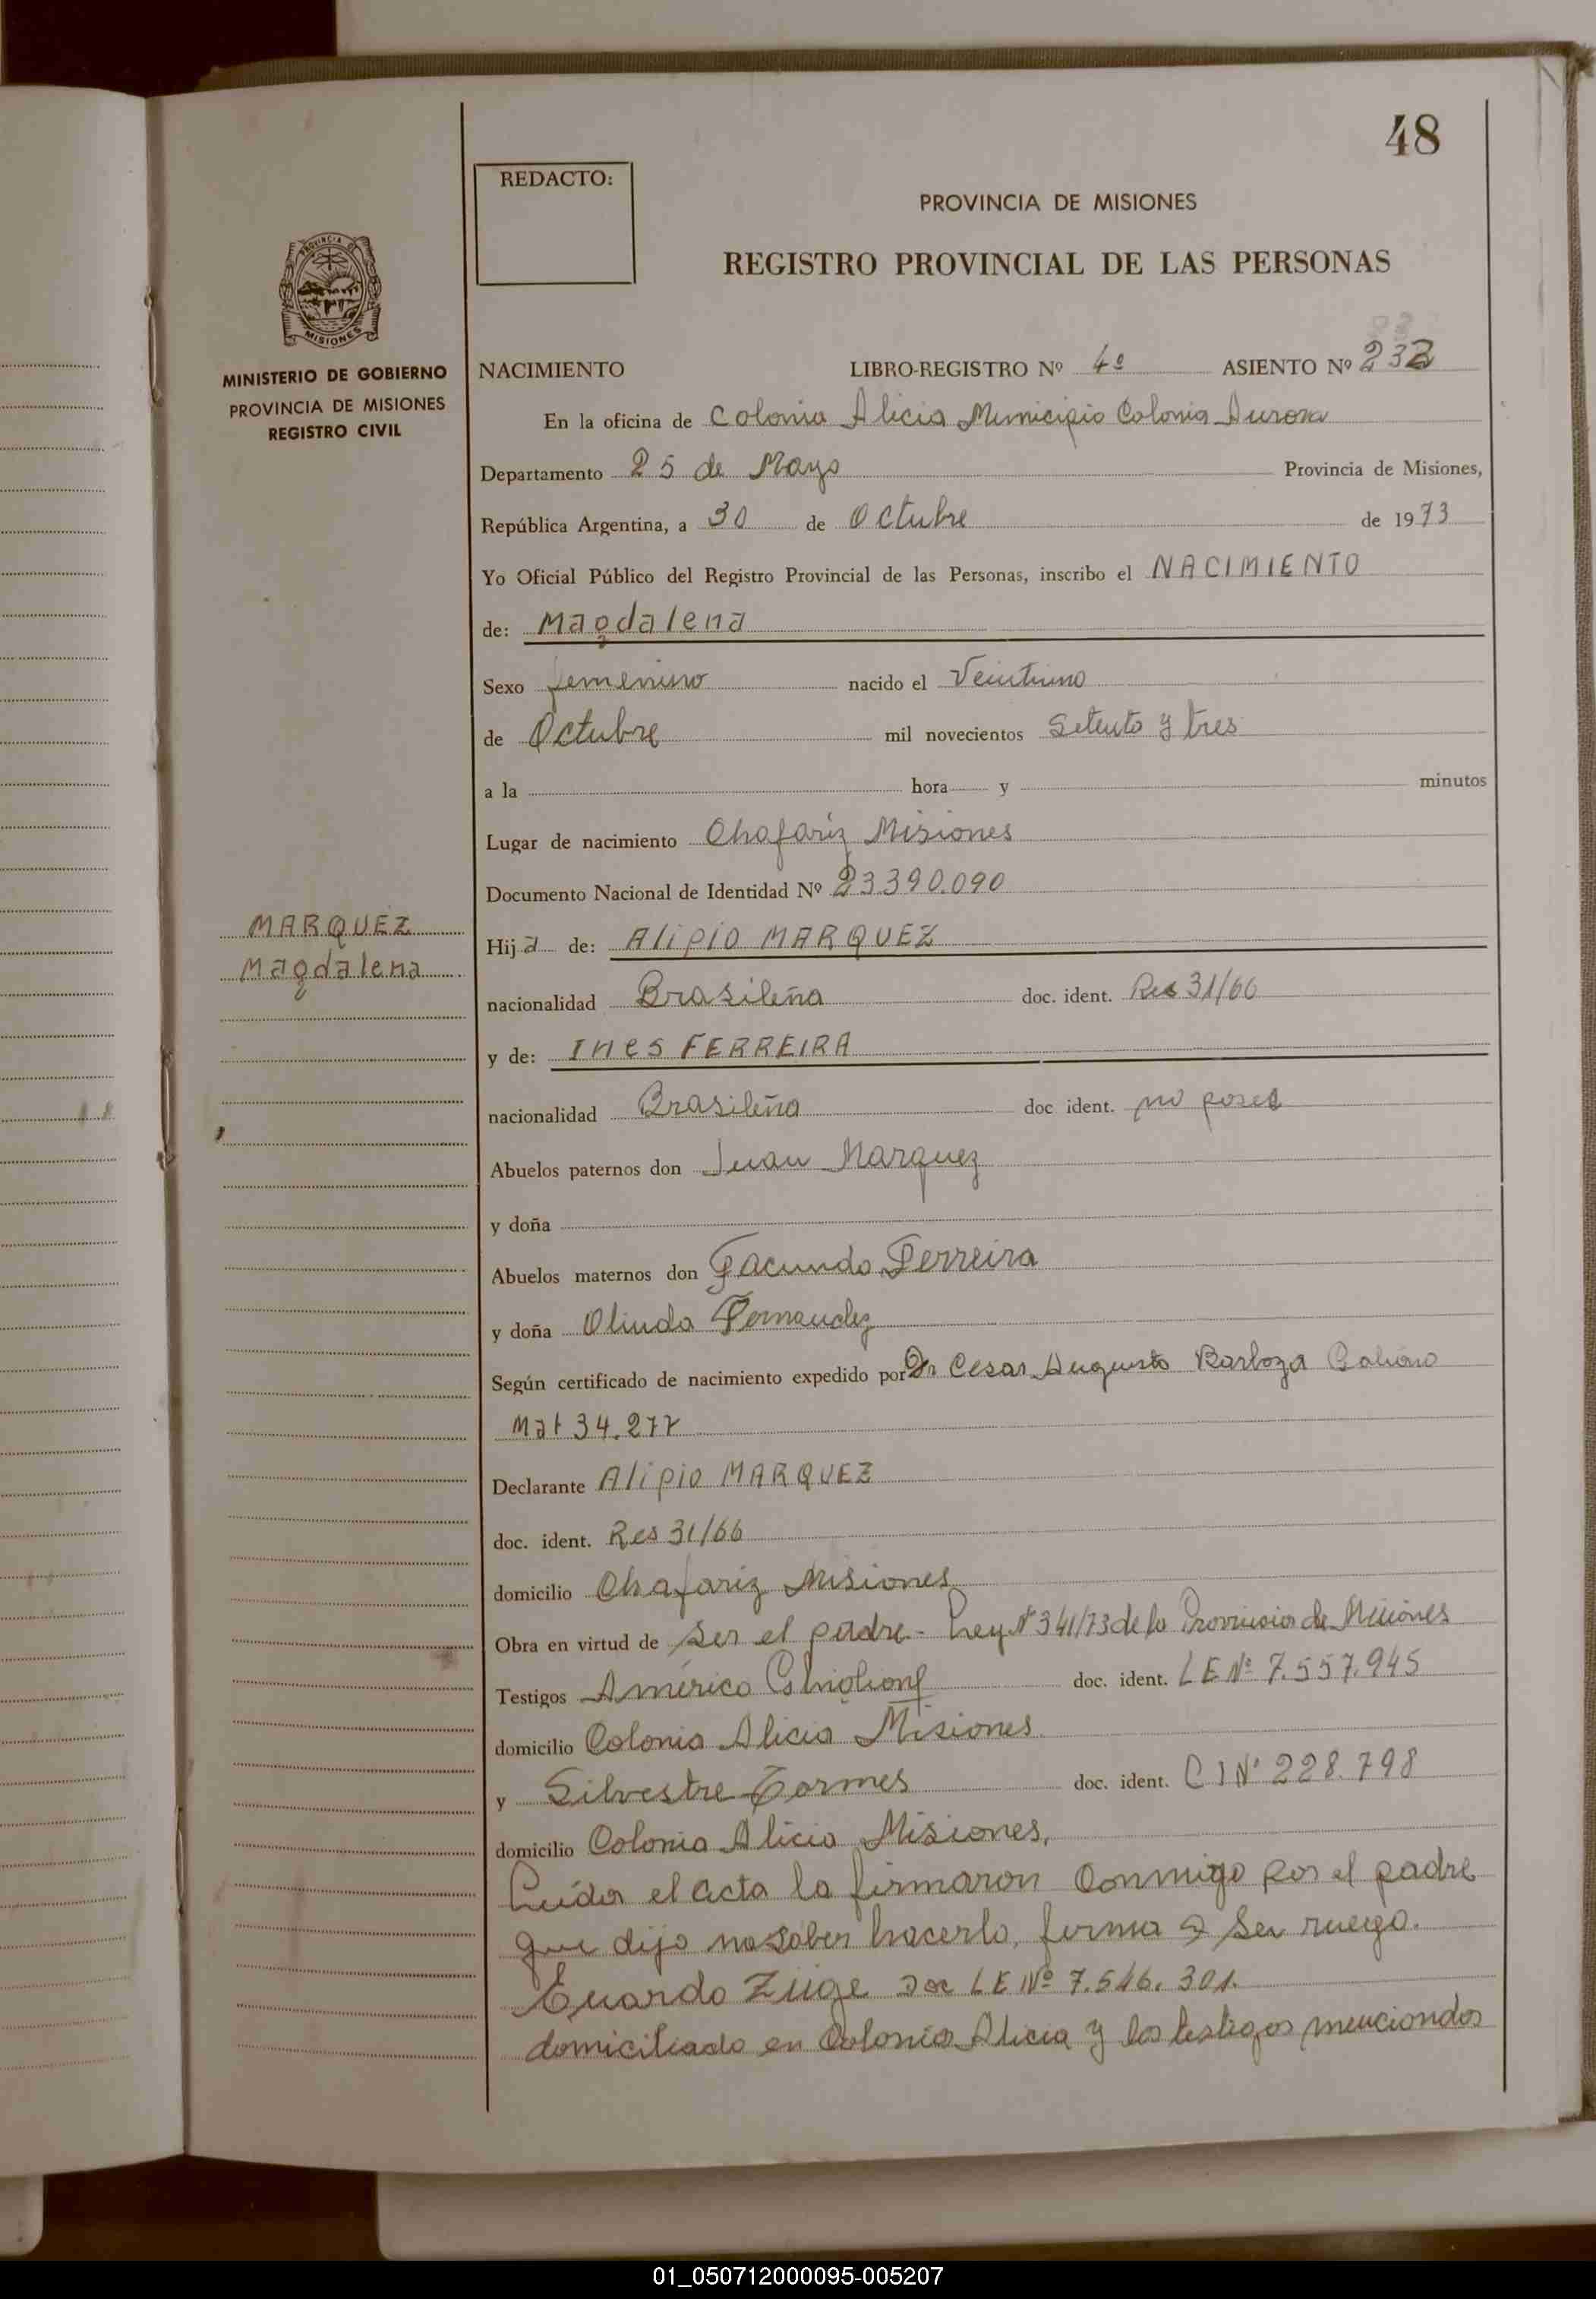 48
REDACTO:
PROVINCIA DE MISIONES
REGISTRO PROVINCIAL DE LAS PERSONAS
MISIONES
MINISTERIO DE GOBIERNO
PROVINCIA DE MISIONES
REGISTRO CIVIL
NACIMIENTO LIBRO-REGISTRO Nº 4º ASIENTO Nº 232
En la oficina de Colonia Alicia Municipio Colonia Aurora
Departamento 25 de Mayo Provincia de Misiones,
República Argentina, a 30 de Octubre de 1973
Yo Oficial Público del Registro Provincial de las Personas, inscribo el NACIMIENTO
de: Magdalena
Sexo femenino nacido el Veintiuno
de Octubre mil novecientos Setenta y tres
a la hora y minutos
Lugar de nacimiento Chafariz Misiones
Documento Nacional de Identidad Nº 23.390.090
MARQUEZ
Magdalena
Hija de: Alipio MARQUEZ
nacionalidad Brasileña doc. ident. Res 31/66
y de: INES FERREIRA
nacionalidad Brasileña doc ident. no posee
Abuelos paternos don Juan Marquez
y doña
Abuelos maternos don Facundo Ferreira
y doña Olinda Fernandez
Según certificado de nacimiento expedido por Dr Cesar Augusto Barboza
Mat 34.277
Declarante Alipio MARQUEZ
doc. ident. Res 31/66
domicilio Chafariz Misiones
Obra en virtud de ser el padre - Ley Nº 341/73 de la Provincia de Misiones
Testigos Américo doc. ident. LE Nº 7.557.945
domicilio Colonia Alicia Misiones
y Silvestre Tormes doc. ident. C I Nº 228.798
domicilio Colonia Alicia Misiones,
Leida el acta la firmaron Conmigo por el padre
que dijo no saber hacerlo, firma a su ruego.
Euardo Züge Doc LE Nº 7.546.301.
domiciliado en Colonia Alicia y los testigos menciondos
01_050712000095-005207